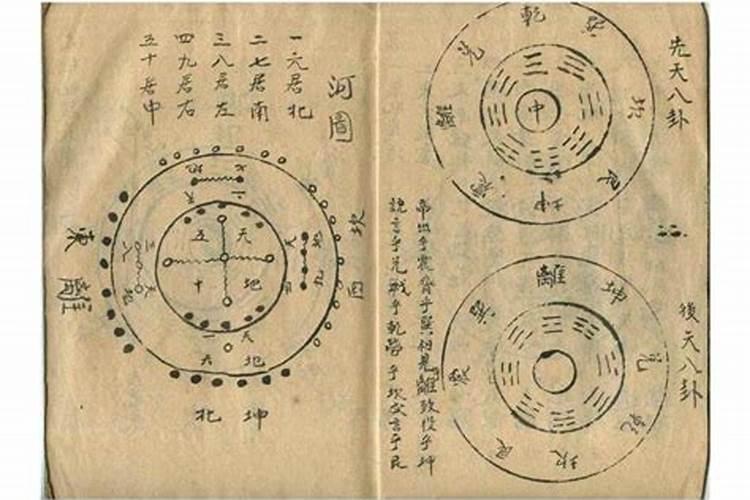 先天八卦
乾
巽
坎
艮
坤
震
離
兌
中
後天八卦
離
坤
兌
乾
坎
艮
震
巽
帝出乎震齊乎巽相見乎離致役乎坤
說言乎兌戰乎乾勞乎坎成言乎艮
河圖
一六居北
二七居南
三八居左
四九居右
五十居中
坎
西
天
五
地
十
一
天
地
東
離
北
坤